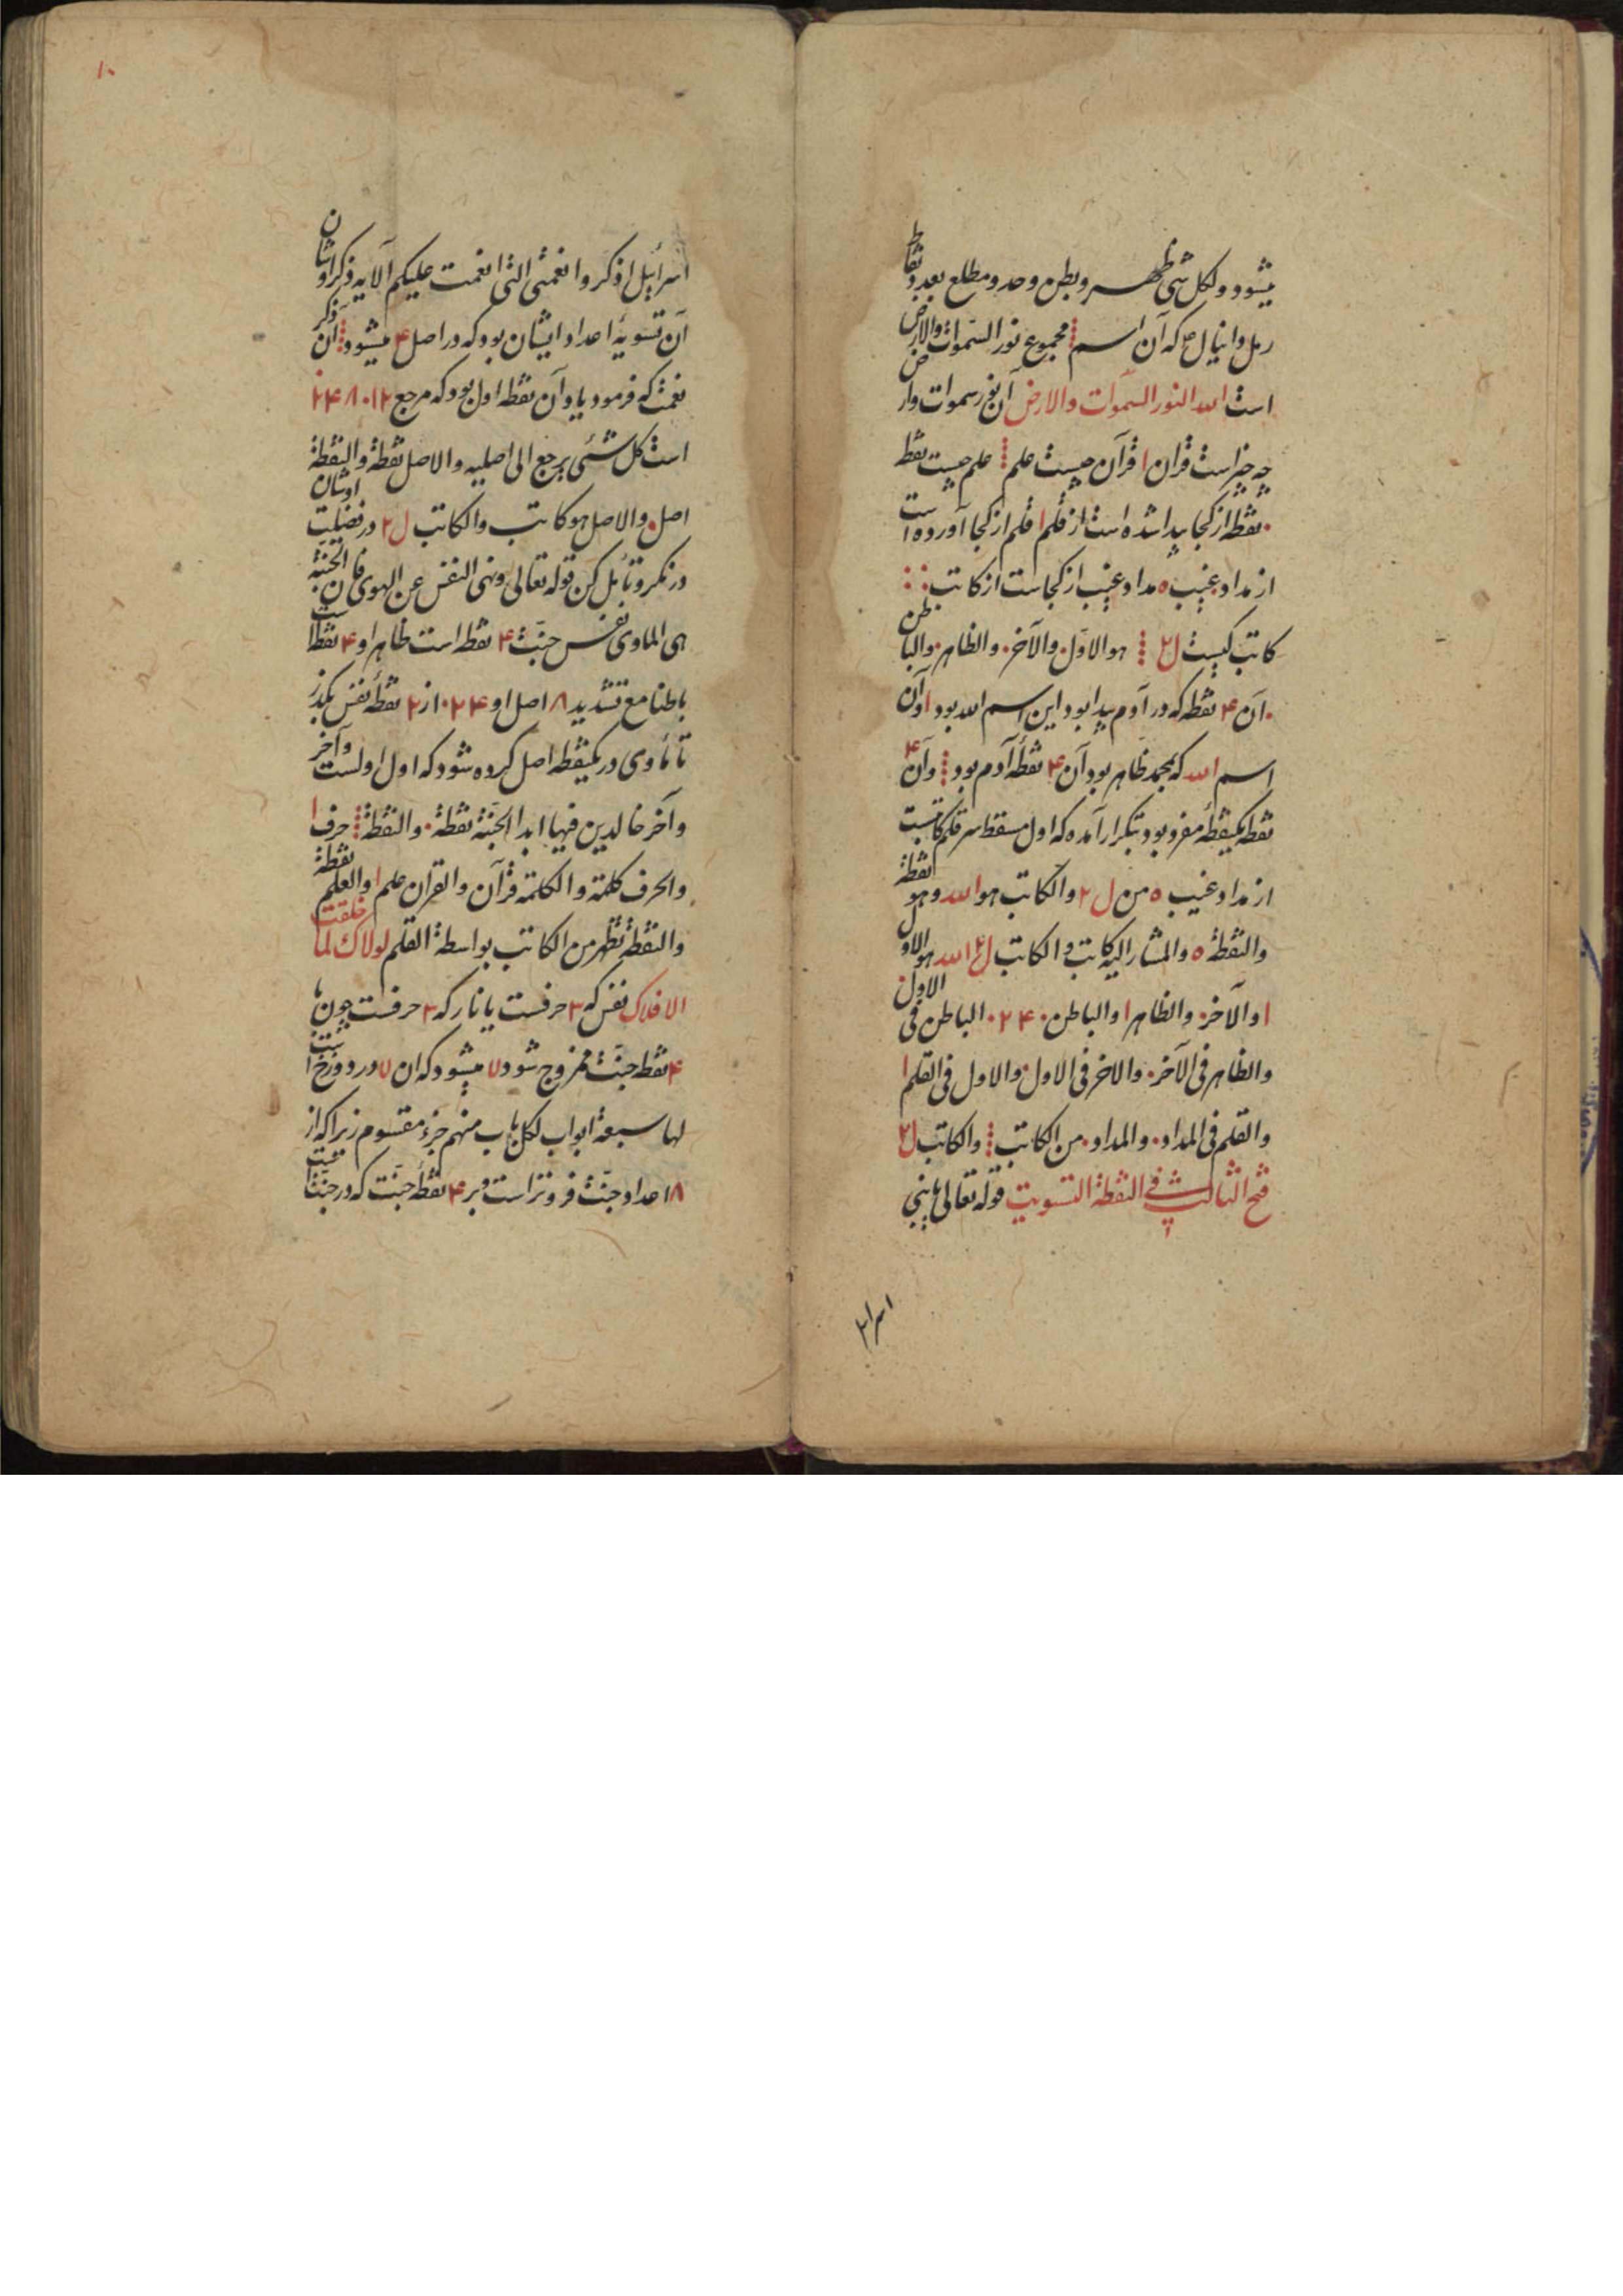 میشود و لکل شی ظهر و بطن و حد و مطلع بعدد نقاط
رمل دانیال ع که آن اسم ⁞ مجموع نور السموات والارض
است الله النور السموات والارض آن نور سموات وارض
چه چیز است قرآن ا قرآن چیست علم ⁞ علم چیست نقطه
. نقطه از کجا پیدا شده است از قلم ا قلم از کجا آورده است
از مداد غیب ه مداد غیب از کجاست از کاتب
کاتب کیست ل۲ ⁞ هو الاول. والآخر. والظاهر. والباطن
. آن ۴ نقطه که در آدم پیدا بود این اسم الله بود ا و آن
اسم الله که بمحمد ظاهر بود آن ۴ نقطهٔ آدم بود ⁞ و آن ۴
نقطه یکنقطهٔ مفرد بود بتکرار آمده که اول مسقط سر قلم کاتبست
از مداد غیب ه من ل ۲ والکاتب هو الله وهو النقطة
والنقطة ه والمشار الیه کاتب و الکاتب ل۲ الله هو الاول
ا والآخر. والظاهر ا والباطن ۲۴۰. الباطن فی الاول
والظاهر فی الآخر. والاخر فی الاول. والاول فی القلم ا
والقلم فی المداد. والمداد. من الکاتب ⁞ والکاتب ل۲
فتح الثالث فی النقطة التسویت قوله تعالی یا بنی
اسرا
۱۰
اسرائیل اذکروا نعمتی التی انعمت علیکم الآیه ذکر اوشان
آن تسویهٔ اعداد ایشان بود که در اصل ۴ میشود ⁞ آن ذکر
نعمت که فرمود یاد آن نقطه اول بود که مرجع
است کل شئی یرجع الی اصلیه والاصل نقطة والنقطة
اصل. والاصل هو کاتب والکاتب ل۲ در فضلیت اوشان
در نکر و تأمل کن قوله تعالی ونهی النفس عن الهوی فان الجنة
هی الماوی نفس جنت ۴ نقطه است ظاهرا و ۴ نقطه است
باطنا مع تشدید ۸ اصل او ۲۴۰ از ۲ نقطهٔ نفس بگذر
تا مأوی در یکنقطه اصل کرده شود که اول اولست و آخر
و آخر خالدین فیها ابدا الجنة نقطة. والنقطة ⁞ حرف ا
والحرف کلمة والکلمة قرآن والقرآن علم ا والعلم نقطة
والنقطة تظهر من الکاتب بواسطة القلم لولاک لما خلقت
الافلاک نفس که ۳ حرفست یا نار که ۳ حرفست چون با
۴ نقطه جنت مخروج شود ۷ میشود که ان ۷ در دوزخ است
لها سبعة ابواب لکل باب منهم جزء مقسوم زیرا که از
۱۸ اعداد جنت فروتر است و بر ۴ نقطهٔ جنت که در جنت